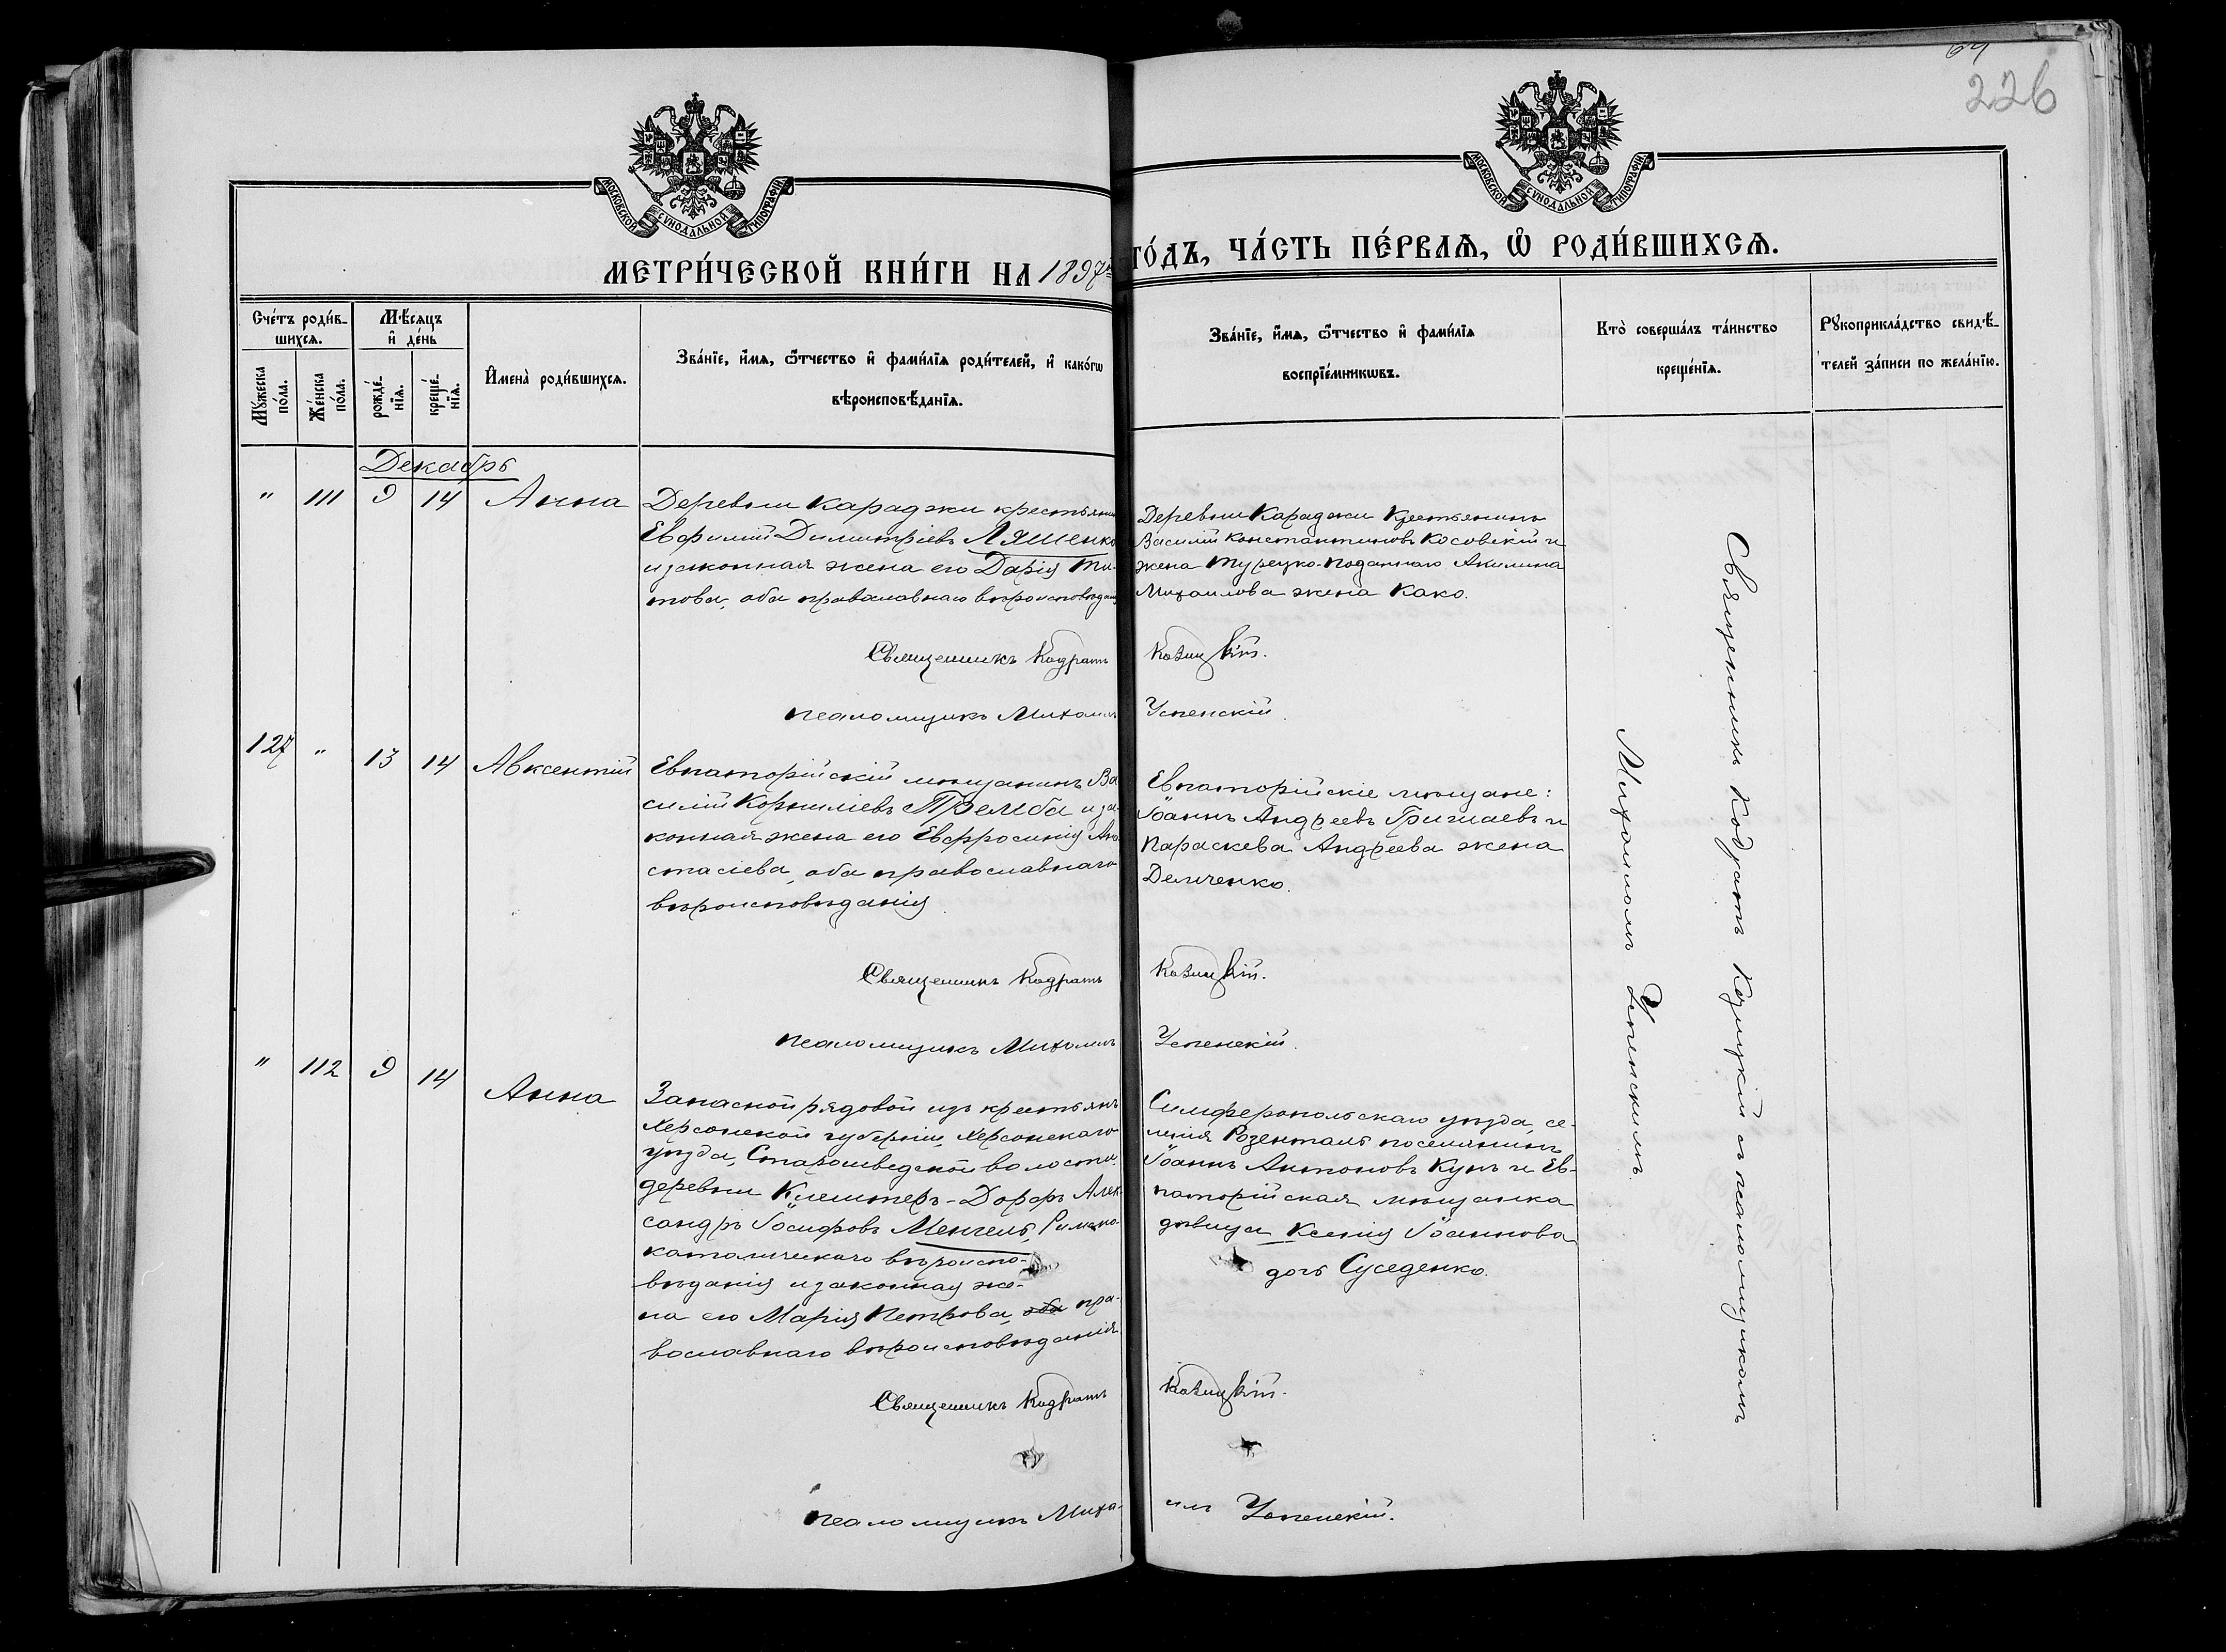 64
226
МОСКОВСКОЙ СѴНОДАЛЬНОЙ ТИПОГРАФІИ
МОСКОВСКОЙ СѴНОДАЛЬНОЙ ТИПОГРАФІИ
МЕТРИ́ЧЕСКОЙ КНИ́ГИ НА 1897й
ГО́ДЪ, ЧА́СТЬ ПЕ́РВАѦ, Ѡ҆ РОДИ́ВШИХСѦ.
Сче́тъ роди́в-
шихсѧ.
Мꙋ́жеска
по́ла.
Же́нска
по́ла.
Мѣ́сѧцъ
и҆ де́нь
рожде́-
нїѧ.
креще́-
нїѧ.
И҆мена̀ роди́вшихсѧ.
Зва́нїе, и҆́мѧ, ѻ҆́тчество и҆ фами́лїѧ роди́телей, и҆ како́гѡ
вѣроисповѣ́данїѧ.
Зва́нїе, и҆́мѧ, ѻ҆́тчество и҆ фами́лїѧ
воспрїе́мникѡвъ.
Кто̀ соверша́лъ та́инство
креще́нїѧ.
Рꙋкоприкла́дство свидѣ́-
телей за́писи по жела́нїю.
Декабрь
" 111 9 14 Анна
Деревни Караджи крестьянин
Евфимій Димитріевъ Ляшенко
и законная жена его Дарія Ти-
това, оба православнаго вѣроисповѣданія
Деревни Караджи Крестьянинъ
Василій Константиновъ Косовскій и
жена Турецко-подданнаго Акилина
Михаилова жена Како.
Священникъ Кодратъ Козицкій.
Псаломщикъ Михаилъ Успенскій.
127 " 13 14 Авксентій
Евпаторійскій мѣщанинъ Ва
силій Корниліевъ Тремба и за-
конная жена его Евфросинія Ана
стасіева, оба православнаго
вѣроисповѣданія
Евпаторійскіе мѣщане:
Іоаннъ Андреевъ Гришаевъ и
Параскева Андреева жена
Демченко.
Священникъ Кодратъ Козицкій.
Псаломщикъ Михаилъ Успенскій.
" 112 9 14 Анна
Запасной рядовой изъ крестьянъ
Херсонской губерніи, Херсонскаго
уѣзда, Старошведской волости,
деревни Клештеръ-Дорфъ Алек-
сандръ Іосифовъ Менгель, Римско-
католическаго вѣроиспо-
вѣданія и законная же-
на его Марія Петрова, оба пра-
вославнаго вѣроисповѣданія
Симферопольскаго уѣзда, се-
ленія Розенталь поселянинъ
Іоаннъ Антоновъ Кунъ и Ев-
паторійская мѣщанка
дѣвица Ксенія Іоаннова
дочь Суседенко.
Священникъ Кодратъ Козицкій.
Псаломщикъ Михаилъ Успенскій.
Священникъ Кодратъ Козицкій съ псаломщикомъ
Михаиломъ Успенскимъ.